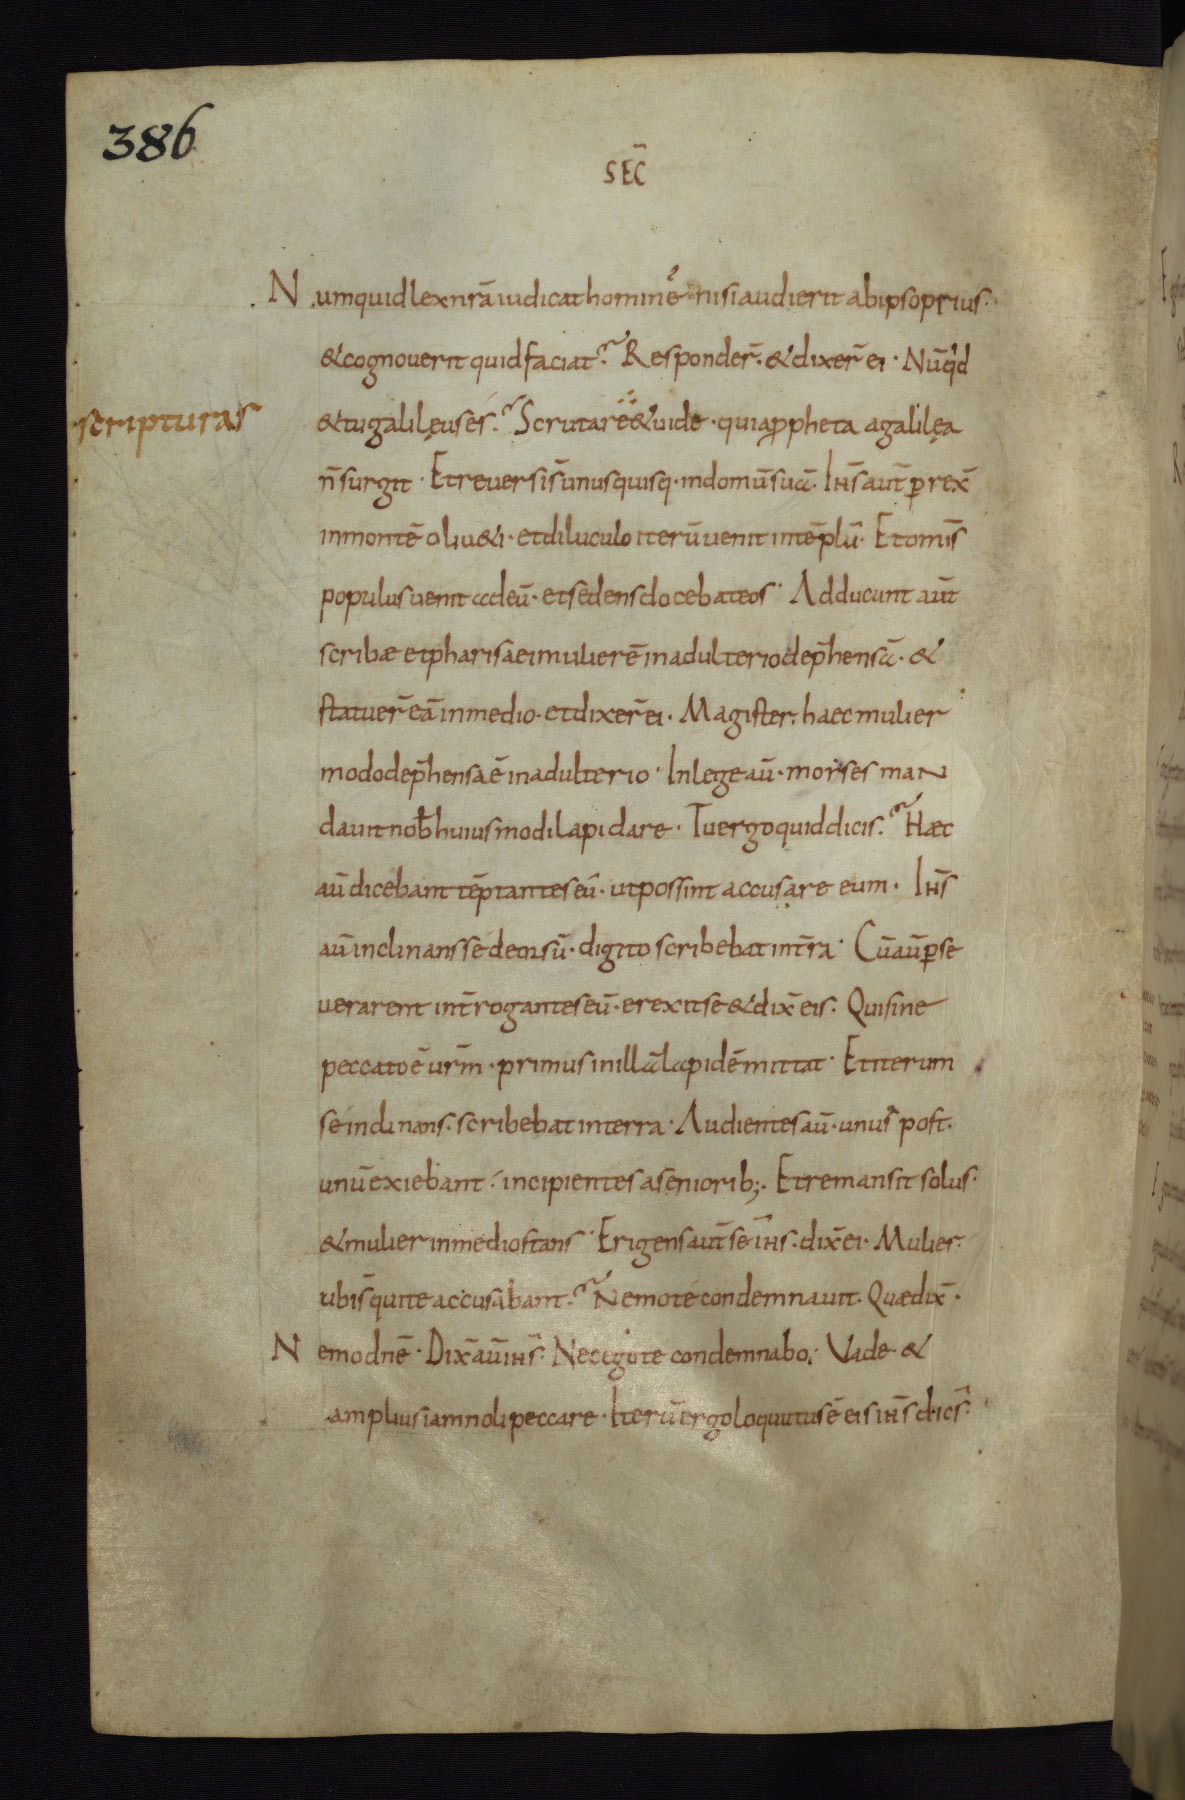 386
SEC̄
Numquid lex nr̄a iudicat hominē nisi audierit ab ipso prius·
& cognoverit quid faciat? Responder̄· & dixer̄ ei· Nūqd
scripturas
& tu galilęus es? Scrutare & uide· quia ꝓpheta a galilęa
n̄ surgit· Et reversi s̄ unusquisq· in domū suā· Ihs̄ aut̄ perrex̄
in montē oliu&i· et diluculo iterū venit in tēplū· Et omīs
populus venit ad eū· et sedens docebat eos· Adducunt aut̄
scribae et pharisaei mulierē in adulterio dep̄hensā· &
statuer̄ eā in medio· et dixer̄ ei· Magister· haec mulier
modo dep̄hensa ē in adulterio· In lege aū· moyses man
davit nob̄ huiusmodi lapidare· Tu ergo quid dicis? Haec
aū dicebant tēptantes eū· ut possint accusare eum· Ihs̄
aū inclinans se deorsū· digito scribebat in t̄ra· Cū aū perse
verarent int̄rogantes eū· erexit se & dix̄ eis· Qui sine
peccato ē ur̄m· primus in illā lapidē mittat· Et iterum
se inclinans· scribebat in terra· Audientes aū· unus post·
unū exiebant· incipientes a seniorib;· Et remansit solus·
& mulier in medio stans· Erigens aut̄ se ihs̄· dix̄ ei· Mulier·
ubi s̄ qui te accusabant? Nemo te condemnavit· Quae dix̄·
Nemo dnē· Dix̄ aū ihs̄· Nec ego te condemnabo· Vade &
amplius iam noli peccare· Iterū ergo loquutus ē eis ihs̄ dices̄·